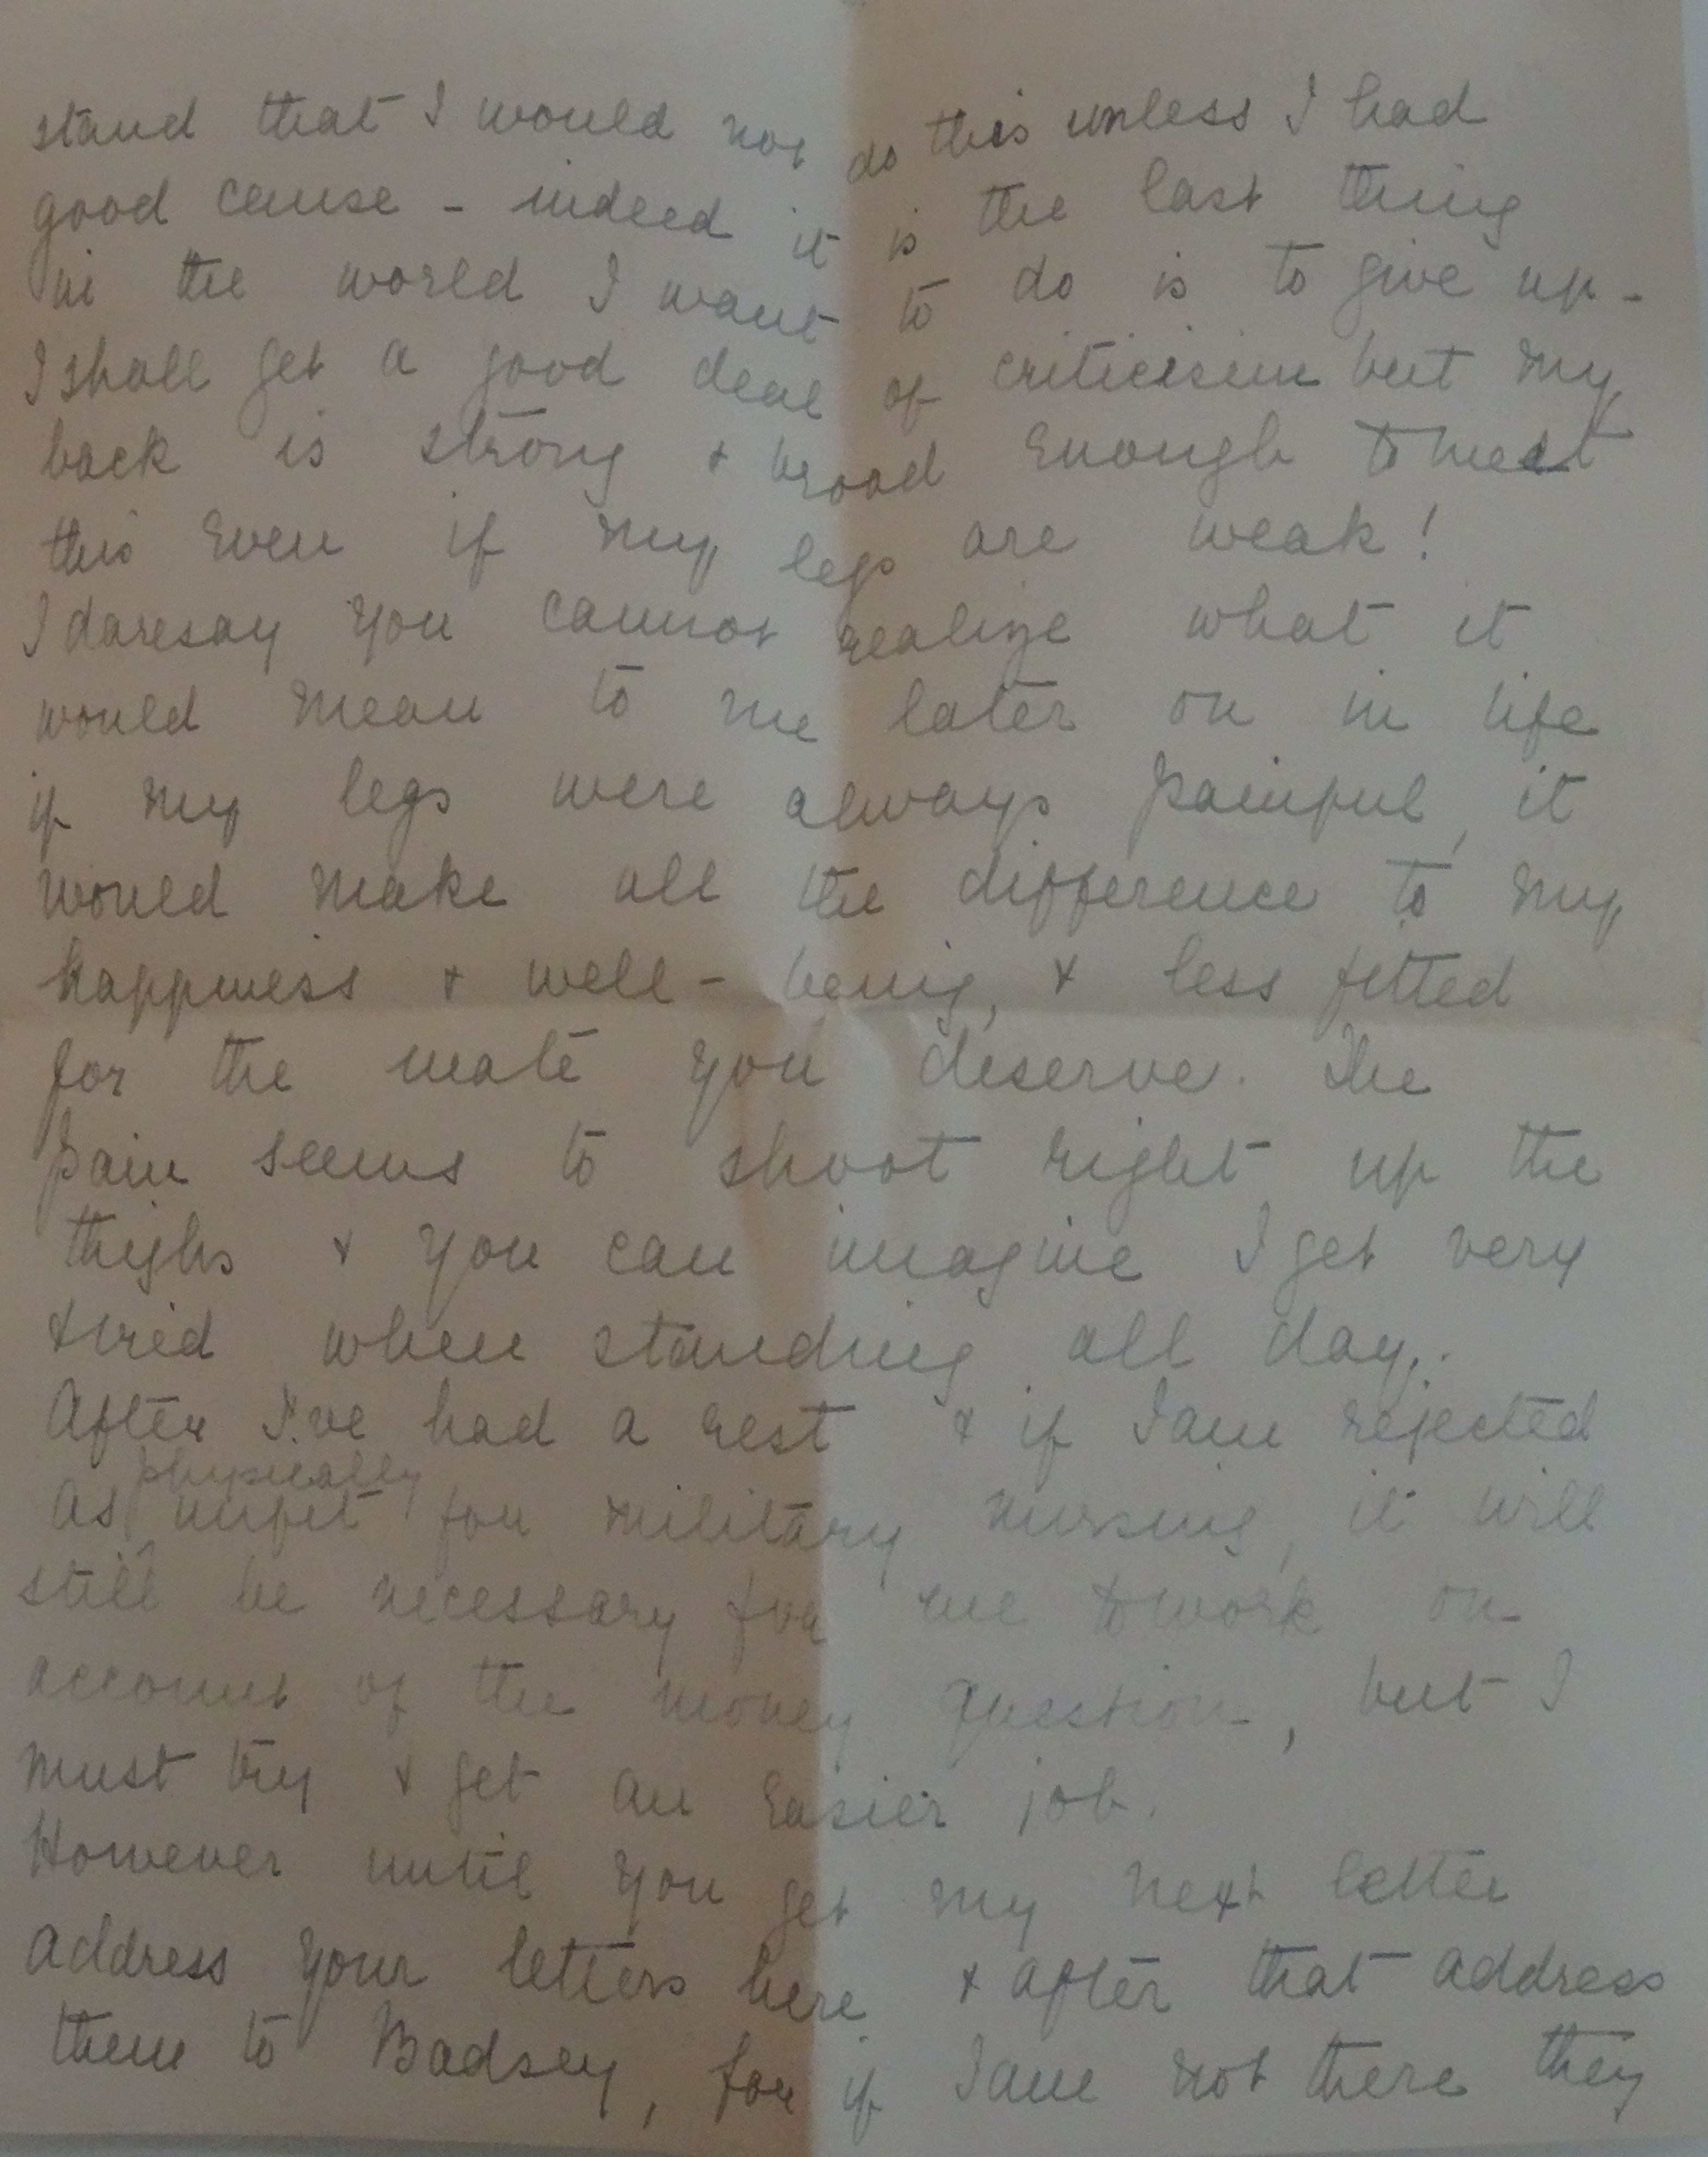 stand that I would not do this unless I had
good cause - indeed it is the last thing
in the world I want to do is to give up -
I shall get a good deal of criticism but my
back is strong + broad enough to meet
this even if my legs are weak!
I daresay you cannot realize what it
would mean to me later on in life
if my legs were always painful, it
would make all the difference to my
happiness + well-being, + less fitted
for the mate you deserve. The
pain seems to shoot right up the
thighs + you can imagine I get very
tired when standing all day.
After I've had a rest + if I am rejected
physically
as unfit for military nursing, it will
still be necessary for me to work on
account of the money question, but I
must try + get an easier job.
However until you get my next letter
address your letters here + after that address
them to Badsey, for if I am not there they